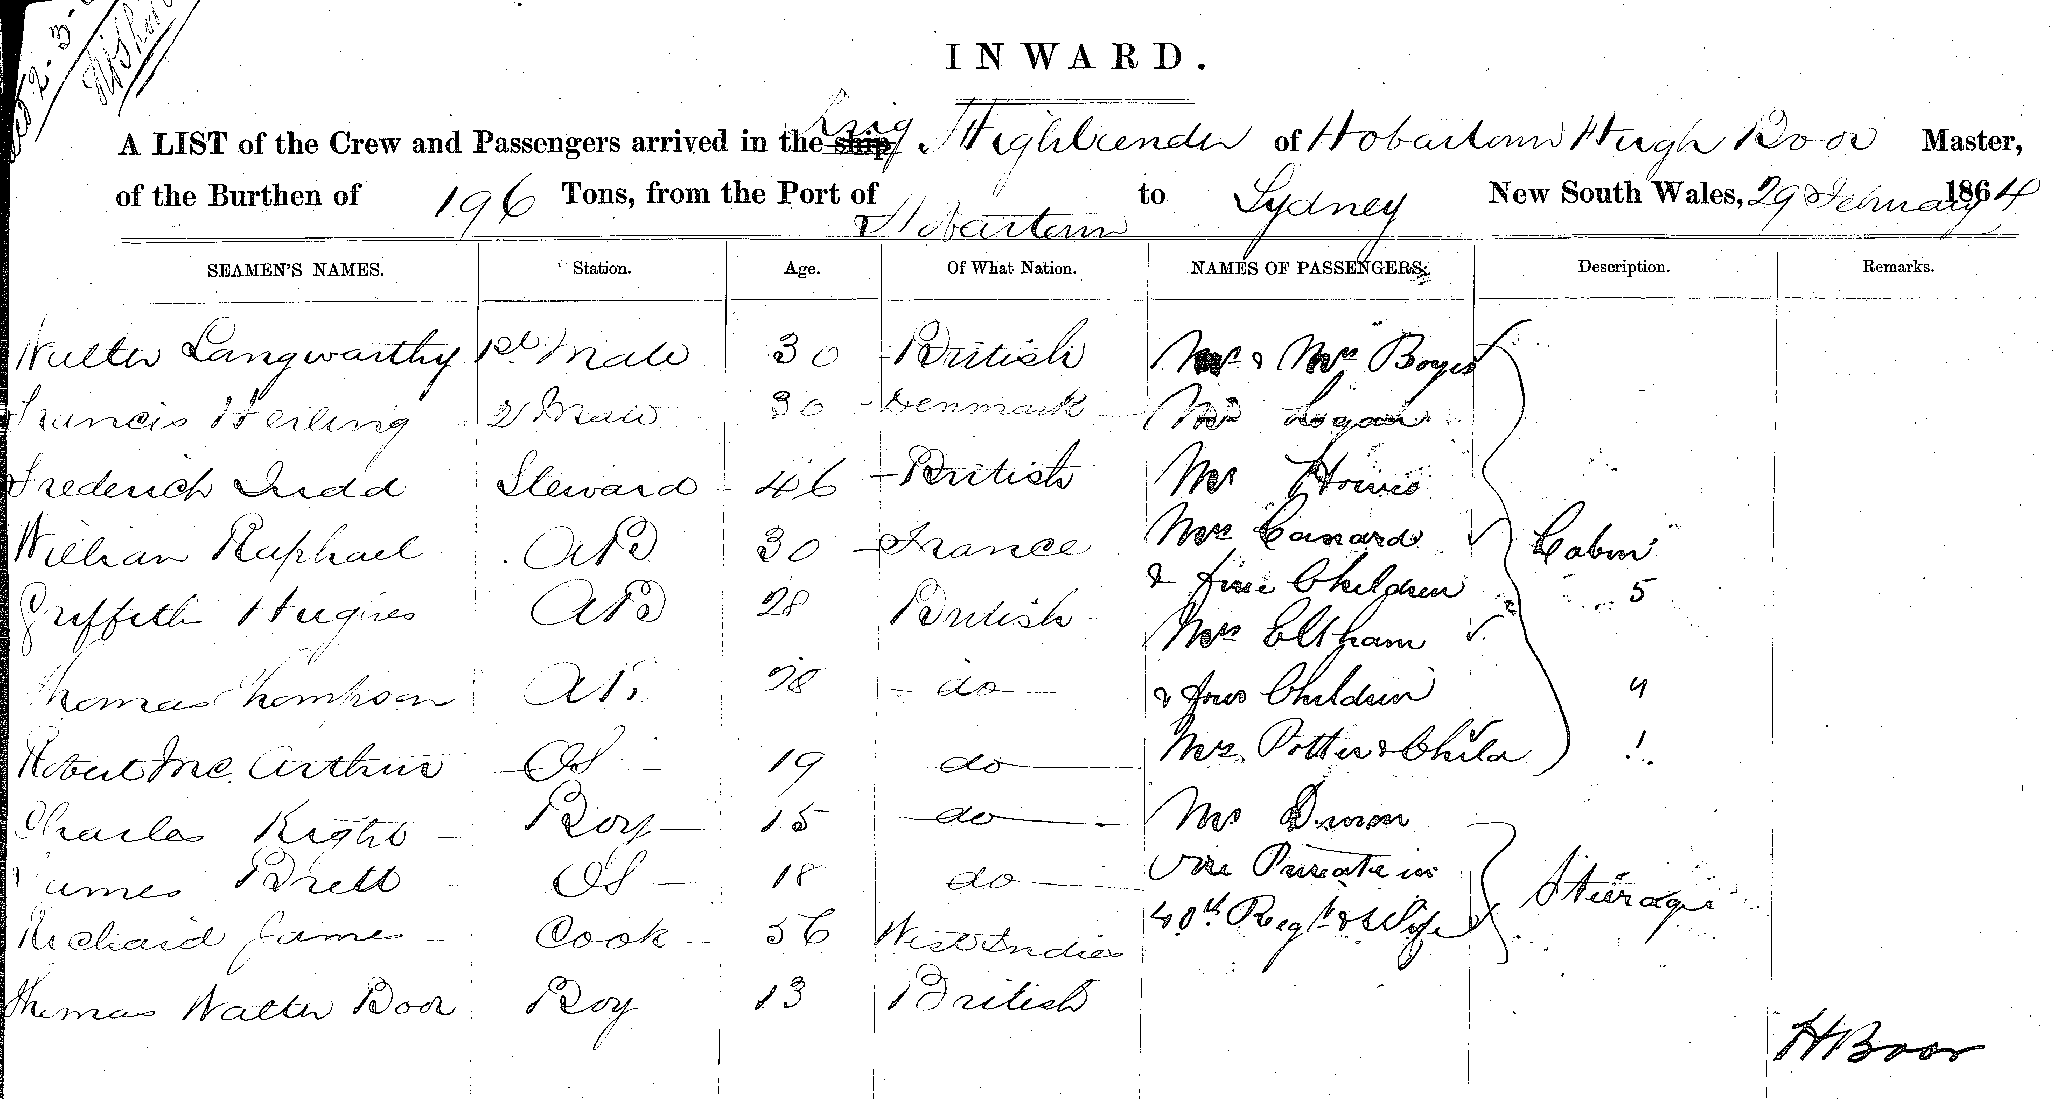 INWARD.
A LIST of the Crew and Passengers arrived in the ship Brig Highlander of Hobartown Hugh Boor Master,
of the Burthen of 196 Tons, from the Port of Hobartown to Sydney New South Wales, 29 February 1864
SEAMEN'S NAMES. Station. Age. Of What Nation. NAMES OF PASSENGERS. Description. Remarks.
Walter Langworthy 1st Mate 30 British Mr & Mrs Boyes
Francis Heiling 2 Mate 30 Denmark Logan
Frederich Judd Steward 46 British Mr
William Raphael AB 30 France Mrs Canard Cabin
Griffith Hughes AB 28 British & five Children 5
Mrs Eltham
Thomas Thompson AB 28 do & four Children 4
Robert Mc. Arthur OS 19 do Mrs Potter & Child 1.
Charles Right Boy 15 do Mr
James Brett OS 18 do One Private in Steerage
Richard James Cook 56 West Indies 40th Regt & Wife
Thomas Walter Boor Boy 13 British
H Boor